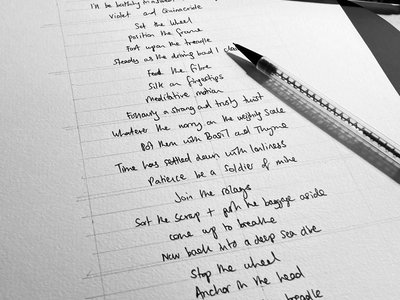 I'll be bathing in
Violet and Quinacridone
Set the wheel
position the frame
Foot upon the treadle
Steady as the driving band I
Feed the fibre
Silk on fingertips
Meditative motion
Following a strong and trusty twist
Whatever the worry on the weighty scale
Pot them with Basil and Thyme
Time has settled down with lonliness
Patience be a soldier of mine
Join the rolags
Sort the scrap + push the baggage aside
come up to breathe
Now back into a deep sea dive
Stop the wheel
Anchor in the head
treadle